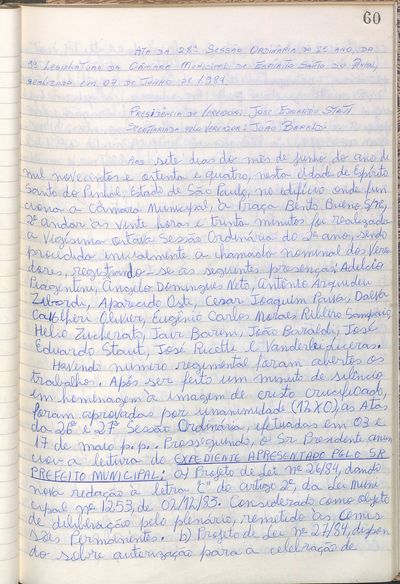 60
Ata da 28ª Sessão Ordinária do 2º ano, da
9ª Legislatura da Câmara Municipal de Espírito Santo do Pinhal,
realizada em 07 de Junho de 1984.
Presidência do Vereador: José Eduardo Staut
Secretariada pelo Vereador: João Baraldi
Aos sete dias do mês de junho do ano de
mil novecentos e oitenta e quatro, nesta cidade de Espírito
Santo do Pinhal, Estado de São Paulo, no edifício onde fun
ciona a Câmara Municipal, à Praça Bento Bueno S/nº,
2º andar às vinte horas e trinta minutos foi realizada
a Vigésima Oitava Sessão Ordinária do 2º ano, sendo
procedida inicialmente a chamada nominal dos Verea
dores, registrando-se as seguintes presenças: Adelcio
Piagentini, Angelo Domingues Neto, Antônio Arquideu
Zibordi, Aparecido Oste, Cesar Joaquim Paiva, Dalva
Olivier, Eugênio Carlos Moraes Ribeiro Sampaio,
Helio Zucherato, Jair Borim, João Baraldi, José
Eduardo Staut, José Ricetti e Vanderlei
Havendo número regimental foram abertos os
trabalhos. Após ser feito um minuto de silêncio
em homenagem à imagem de cristo crucificado,
foram aprovadas por unanimidade (12X0) as Atas
da 26ª e 27ª Sessão Ordinária, efetuadas em 03 e
17 de maio p.p. Prosseguindo, o Sr Presidente anun
ciou a leitura do EXPEDIENTE APRESENTADO PELO SR
PREFEITO MUNICIPAL: a) Projeto de Lei nº 26/84, dando
nova redação à letra do artigo 2º, da Lei Muni
cipal nº 1253, de 02/12/83. Considerado como objeto
de deliberação pelo plenário, remetido às Comis
sões Permanentes. b) Projeto de Lei nº 27/84, dispon
do sobre autorização para a celebração de